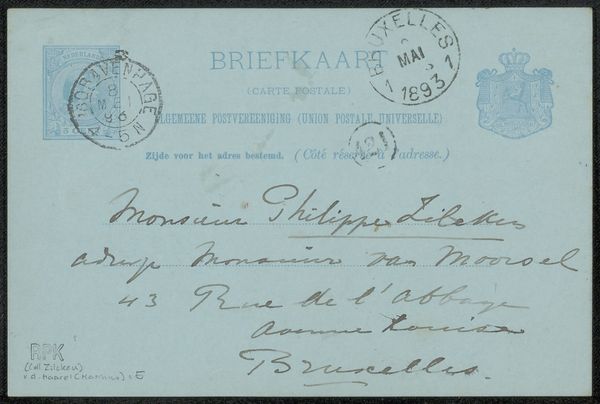 NEDERLAND
BRIEFKAART
(CARTE POSTALE)
ALGEMEENE POSTVEREENIGING (UNION POSTALE UNIVERSELLE)
Zijde voor het adres bestemd. (Côté réservé à l'adresse.)
'S GRAVENHAGE
8
MEI
4-5N
BRUXELLES
MAI
1 1893 1
421
Monsieur Philippe Zilcken
adresse Monsieur van Moorsel
43 Rue de l'Abbaye
Avenue Louise
Bruxelles.
RPK
(Coll Zilcken)
v.d. Maarel (Marinus) : E